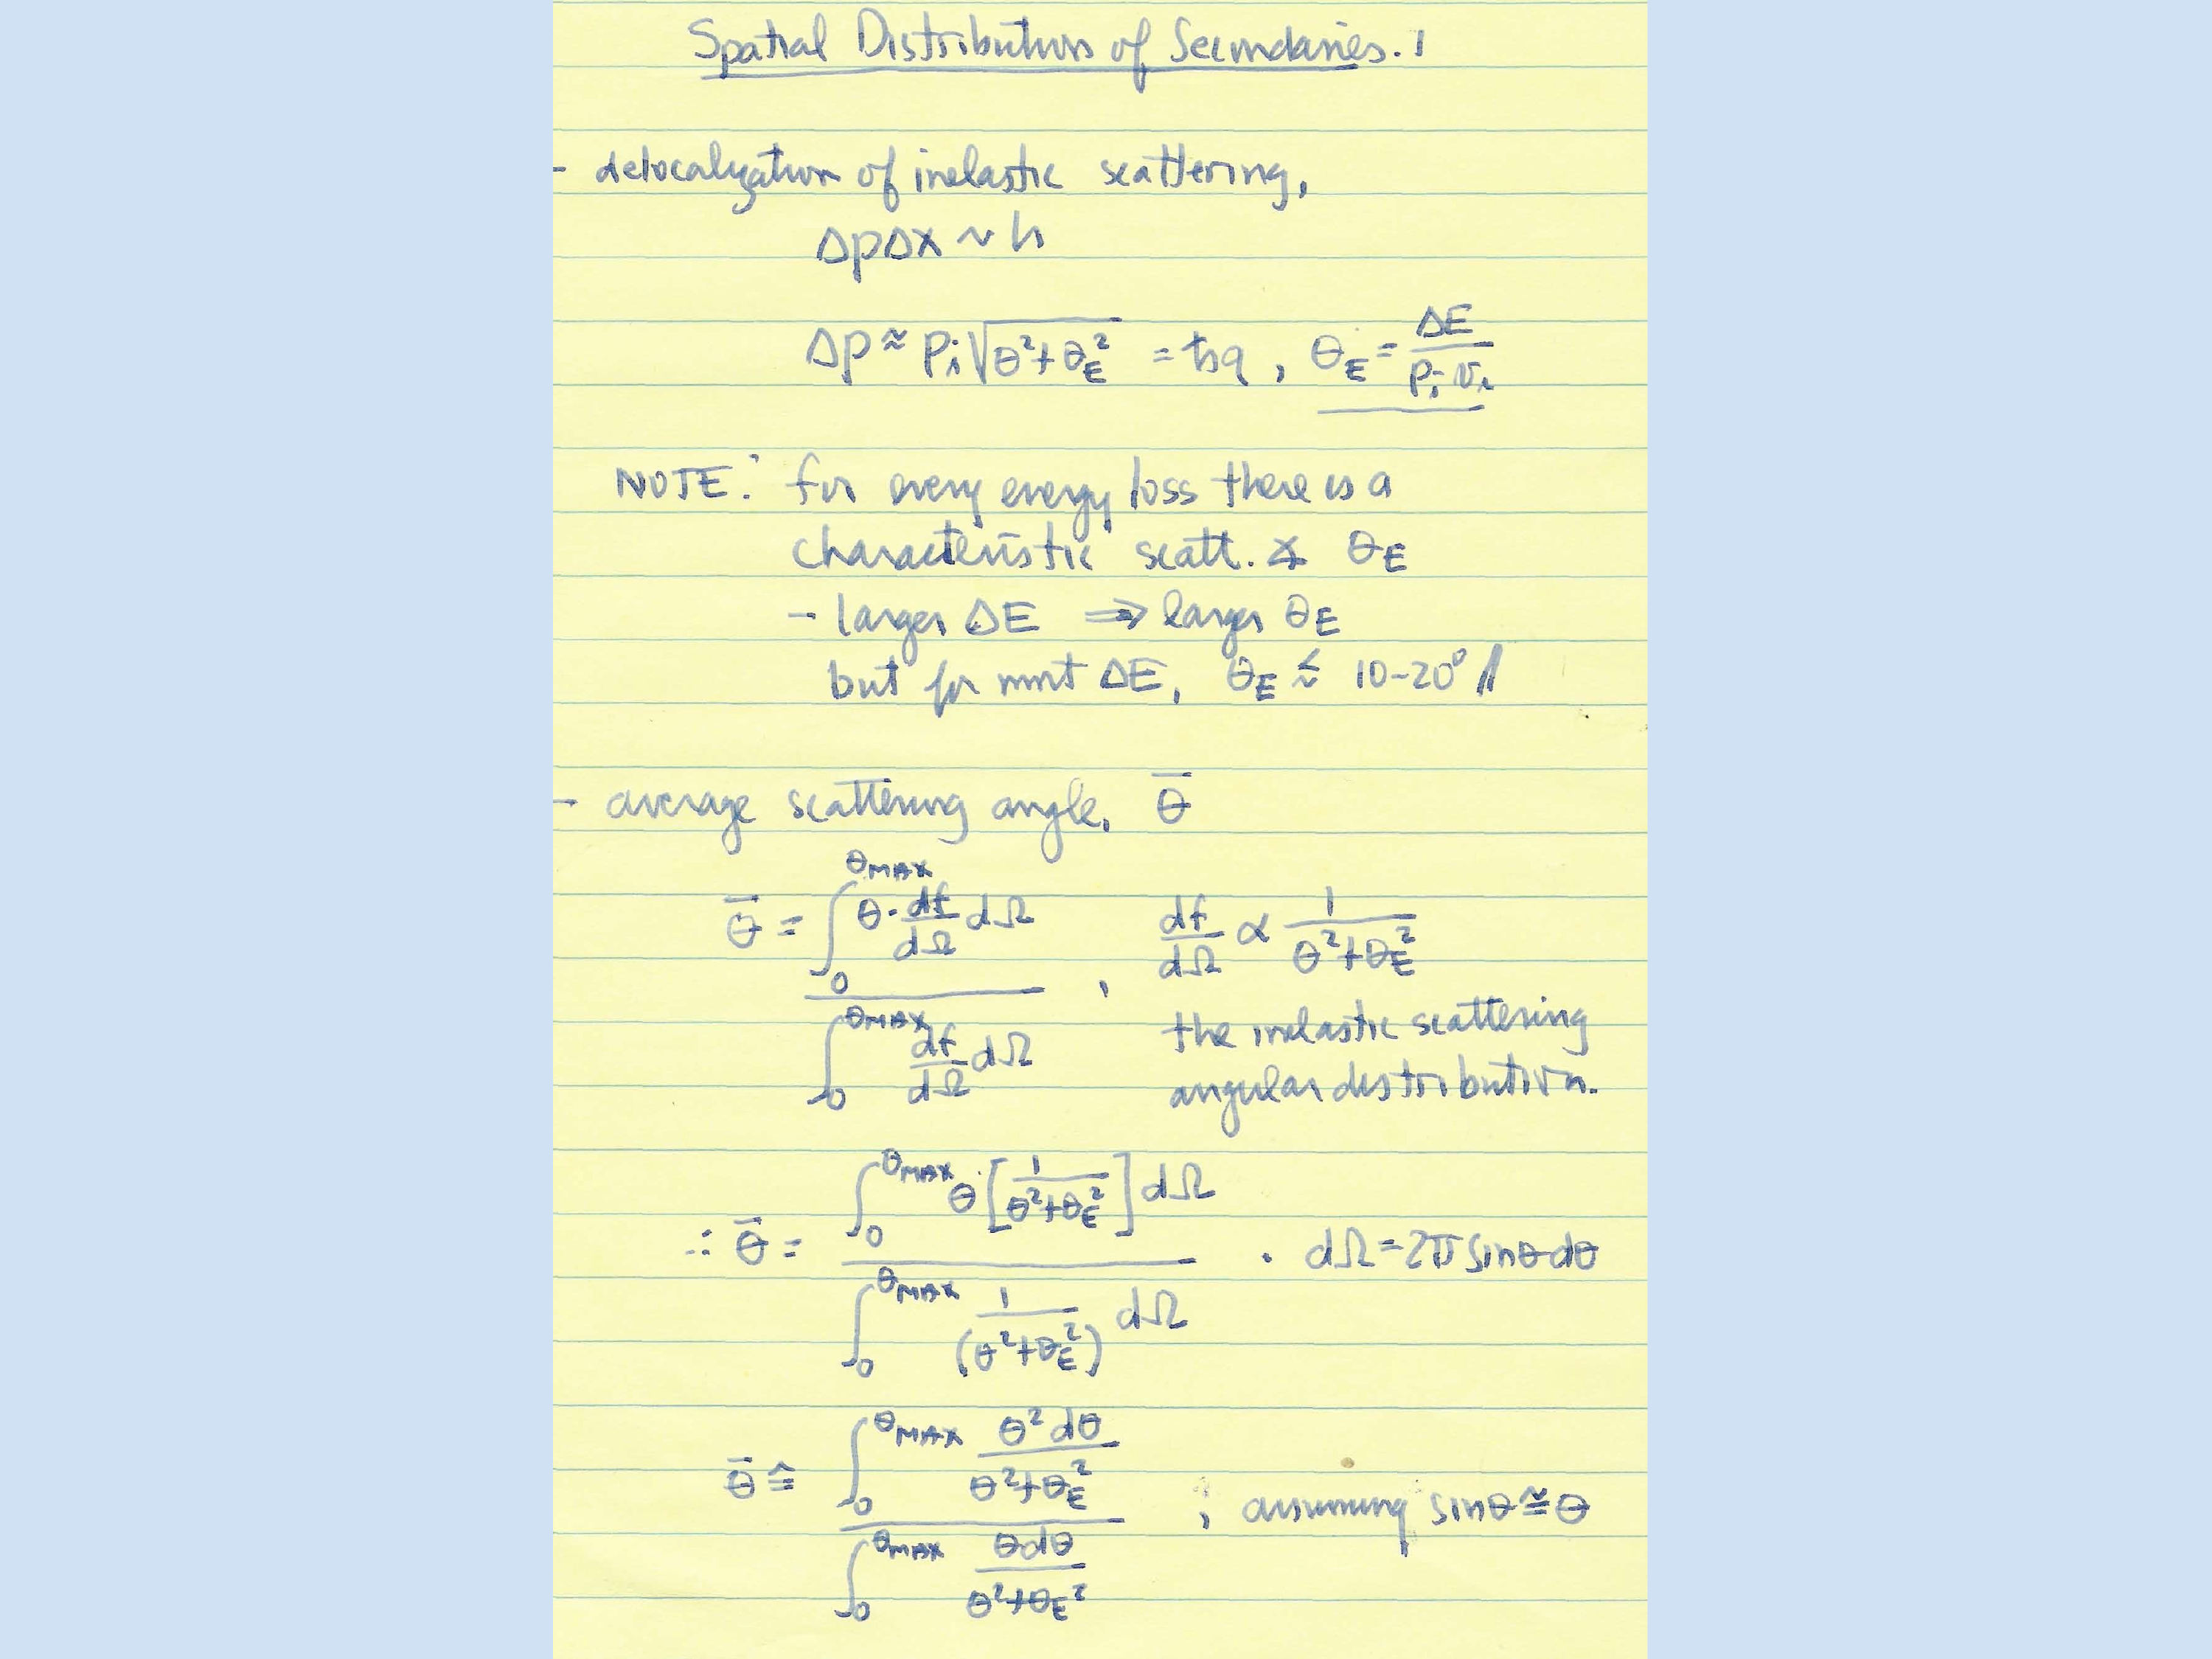 Spatial Distributions of Secondaries. 1
- delocalization of inelastic scattering,
ΔpΔx ~ h
Δp ≈ pᵢ√(θ²+θ_E²) = ħq , θ_E = ΔE/(pᵢ vᵢ)
NOTE: for every energy loss there is a
characteristic scatt. ∡ θ_E
- larger ΔE ⇒ larger θ_E
but for most ΔE, θ_E ≲ 10-20° //
- average scattering angle, θ̄
θ̄ = ∫₀^θMAX θ· df/dΩ dΩ / ∫₀^θMAX df/dΩ dΩ , df/dΩ ∝ 1/(θ²+θ_E²)
the inelastic scattering
angular distribution.
∴ θ̄ = ∫₀^θMAX θ [1/(θ²+θ_E²)] dΩ / ∫₀^θMAX 1/(θ²+θ_E²) dΩ . dΩ = 2π sinθ dθ
θ̄ ≅ ∫₀^θMAX θ² dθ/(θ²+θ_E²) / ∫₀^θMAX θdθ/(θ²+θ_E²) ; assuming sinθ ≅ θ